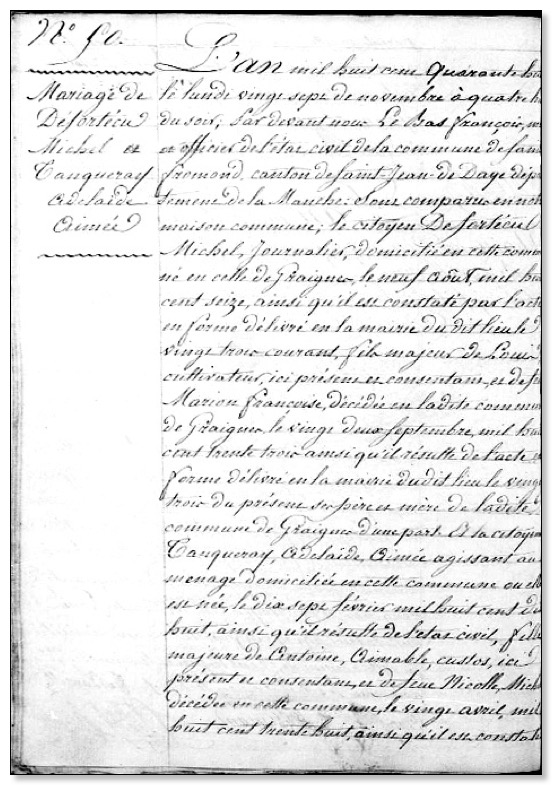 N.º 50.
Mariage de
Defortécu
Michel et
Tanqueray
Adelaïde
Aimée
L'an mil huit cent Quarante hu
le lundi vingt sept de novembre à quatre h
du soir, Par devant nous Le Bas françois, m
et officier de l'état civil de la commune de Sain
fromond, canton de Saint-Jean-de Daye dép
tement de la Manche : Sont comparus en not
maison commune ; le citoyen Defortécu
Michel, Journalier, domicilié en cette comm
né en celle de Graignes, le neuf Août, mil hu
cent seize, ainsi qu'il est constaté par l'acte
en forme délivré en la mairie du dit lieu le
vingt trois courant, fils majeur de Louis
cultivateur, ici présent et consentant, et de fe
Marion françoise, décédée en ladite commun
de Graignes, le vingt deux septembre, mil hu
cent trente trois ainsi qu'il résulte de l'acte e
forme délivré en la mairie du dit lieu le vingt
trois du présent ses père et mère de ladite
commune de Graignes d'une part Et la citoyen
Tanqueray, Adelaïde, Aimée agissant au
ménage domiciliée en cette commune ou elle
est née, le dix sept février mil huit cent di
huit, ainsi qu'il résulte de l'état civil, fille
majeure de Antoine, Aimable, custos, ici
présent et consentant, et de feue Nicolle, Mich
décédée en cette commune, le vingt avril, mil
huit cent trente huit, ainsi qu'il est constat